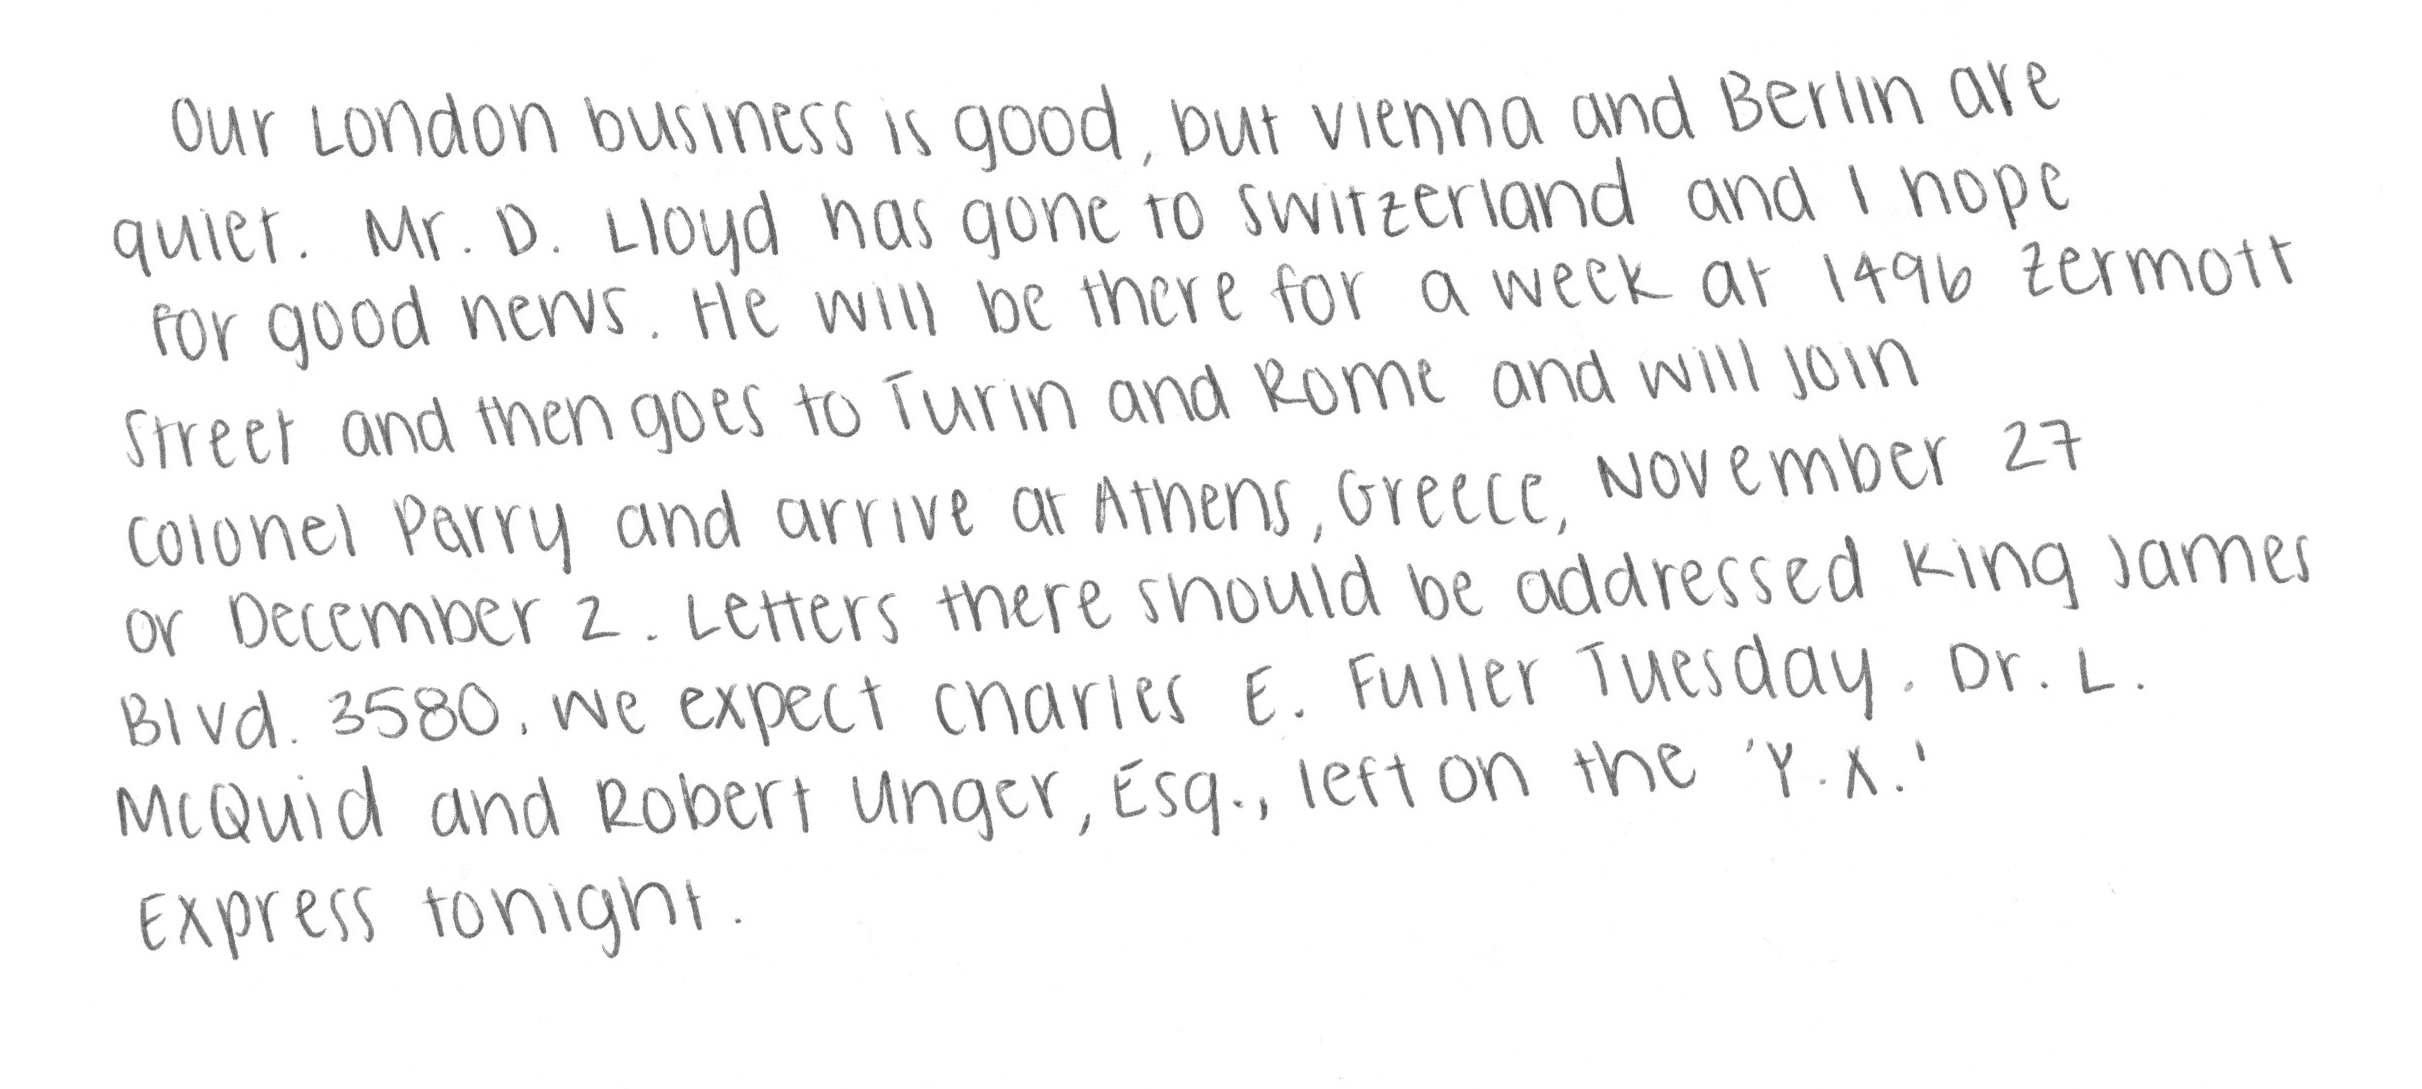 Our London business is good, but Vienna and Berlin are
quiet. Mr. D. Lloyd has gone to Switzerland and I hope
for good news. He will be there for a week at 1496 Zermott
Street and then goes to Turin and Rome and will join
Colonel Parry and arrive at Athens, Greece, November 27
or December 2. Letters there should be addressed King James
Blvd. 3580. We expect Charles E. Fuller Tuesday. Dr. L.
McQuid and Robert Unger, Esq., left on the 'Y.X.'
Express tonight.